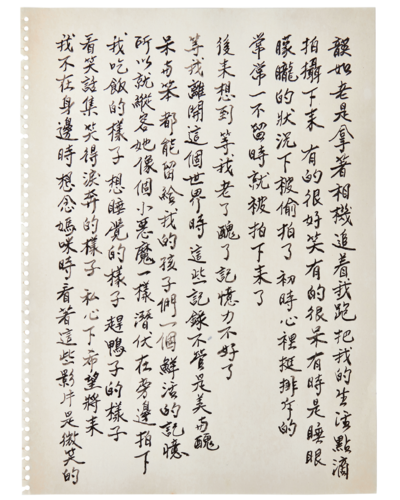 韻如老是拿著相機追着我跑 把我的生活點滴
拍攝下來 有的很好笑有的很呆有時是睡眼
朦朧的狀況下被偷拍了 初時心裡挺排斥的
常常一不留時就被拍下來了
後來想到 等我老了醜了記憶力不好了
等我離開這個世界時 這些記錄不管是美與醜
呆與笨 都能留給我的孩子們一個鮮活的記憶
所以就縱容她像個小惡魔一樣潛伏在旁邊拍下
我吃飯的樣子 想睡覺的樣子 趕鴨子的樣子
看笑話集笑得淚奔的樣子 私心下希望將來
我不在身邊時 想念媽咪時 看著這些影片是微笑的